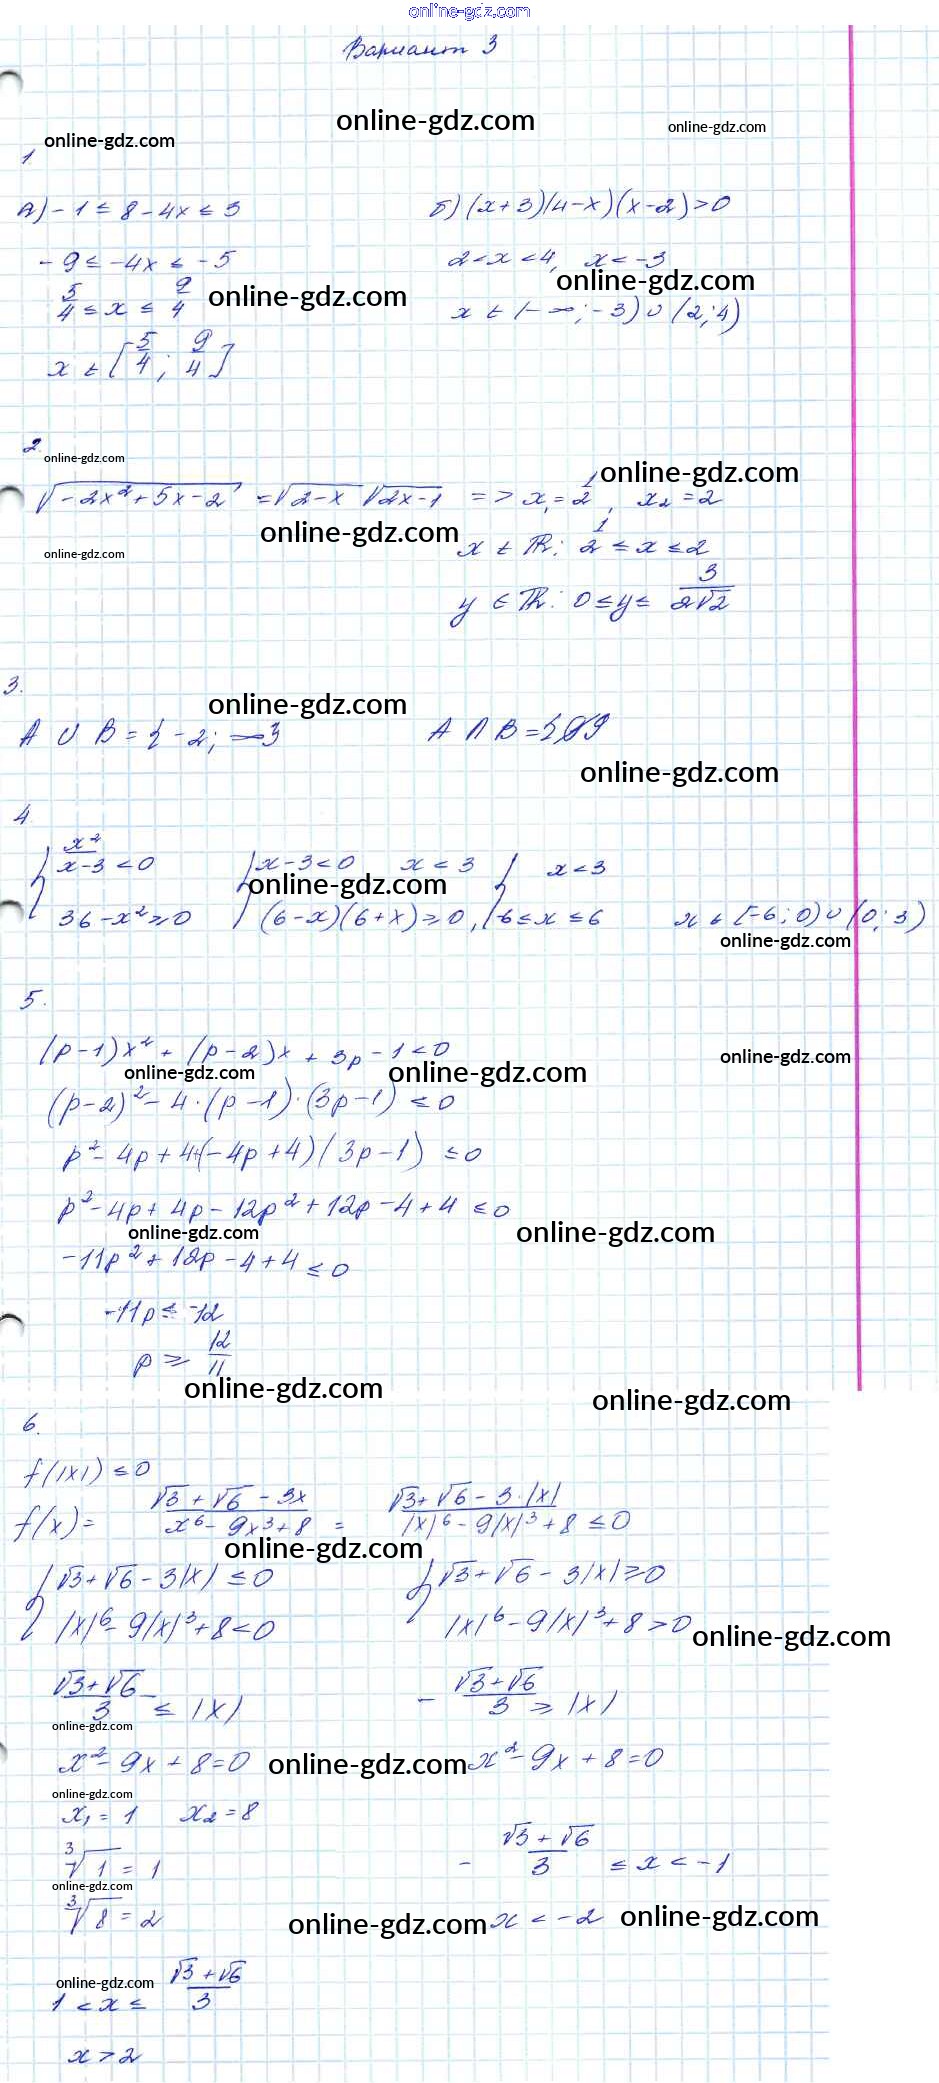 online-gdz.com
Вариант 3
online-gdz.com
online-gdz.com
online-gdz.com
1
а) -1 ≤ 8 - 4x ≤ 3
б) (x+3)(4-x)(x-2) > 0
-9 ≤ -4x ≤ -5
2 < x < 4, x < -3
online-gdz.com
online-gdz.com
5/4 ≤ x ≤ 9/4
x ∈ (-∞; -3) ∪ (2; 4)
x ∈ [5/4; 9/4]
2.
online-gdz.com
online-gdz.com
√(-2x²+5x-2) = √(2-x) √(2x-1) => x₁ = 1/2, x₂ = 2
online-gdz.com
online-gdz.com
x ∈ R: 1/2 ≤ x ≤ 2
y ∈ R: 0 ≤ y ≤ 3/(2√2)
3.
online-gdz.com
A ∪ B = {-2;
A ∩ B =
online-gdz.com
4.
{ x²/(x-3) < 0
{ x-3 < 0 x < 3
{ x < 3
online-gdz.com
36 - x² ≥ 0
(6-x)(6+x) ≥ 0,
-6 ≤ x ≤ 6
x ∈ [-6; 0) ∪ (0; 3)
online-gdz.com
5.
(p-1)x² + (p-2)x + 3p - 1 < 0
online-gdz.com
online-gdz.com
online-gdz.com
(p-2)² - 4·(p-1)·(3p-1) ≤ 0
p² - 4p + 4 + (-4p+4)(3p-1) ≤ 0
p² - 4p + 4p - 12p² + 12p - 4 + 4 ≤ 0
online-gdz.com
online-gdz.com
-11p² + 12p - 4 + 4 ≤ 0
-11p ≤ -12
p ≥ 12/11
online-gdz.com
online-gdz.com
6.
f(|x|) ≤ 0
f(x) = (√3 + √6 - 3x)/(x⁶ - 9x³ + 8) = (√3 + √6 - 3·|x|)/(|x|⁶ - 9|x|³ + 8) ≤ 0
online-gdz.com
{ √3 + √6 - 3|x| ≤ 0
{ √3 + √6 - 3|x| ≥ 0
|x|⁶ - 9|x|³ + 8 < 0
|x|⁶ - 9|x|³ + 8 > 0
online-gdz.com
(√3 + √6)/3 ≤ |x|
- (√3 + √6)/3 ≥ |x|
online-gdz.com
x² - 9x + 8 = 0
online-gdz.com
x² - 9x + 8 = 0
online-gdz.com
x₁ = 1 x₂ = 8
∛1 = 1
- (√3 + √6)/3 ≤ x < -1
online-gdz.com
∛8 = 2
online-gdz.com
x < -2
online-gdz.com
online-gdz.com
1 < x ≤ (√3 + √6)/3
x > 2